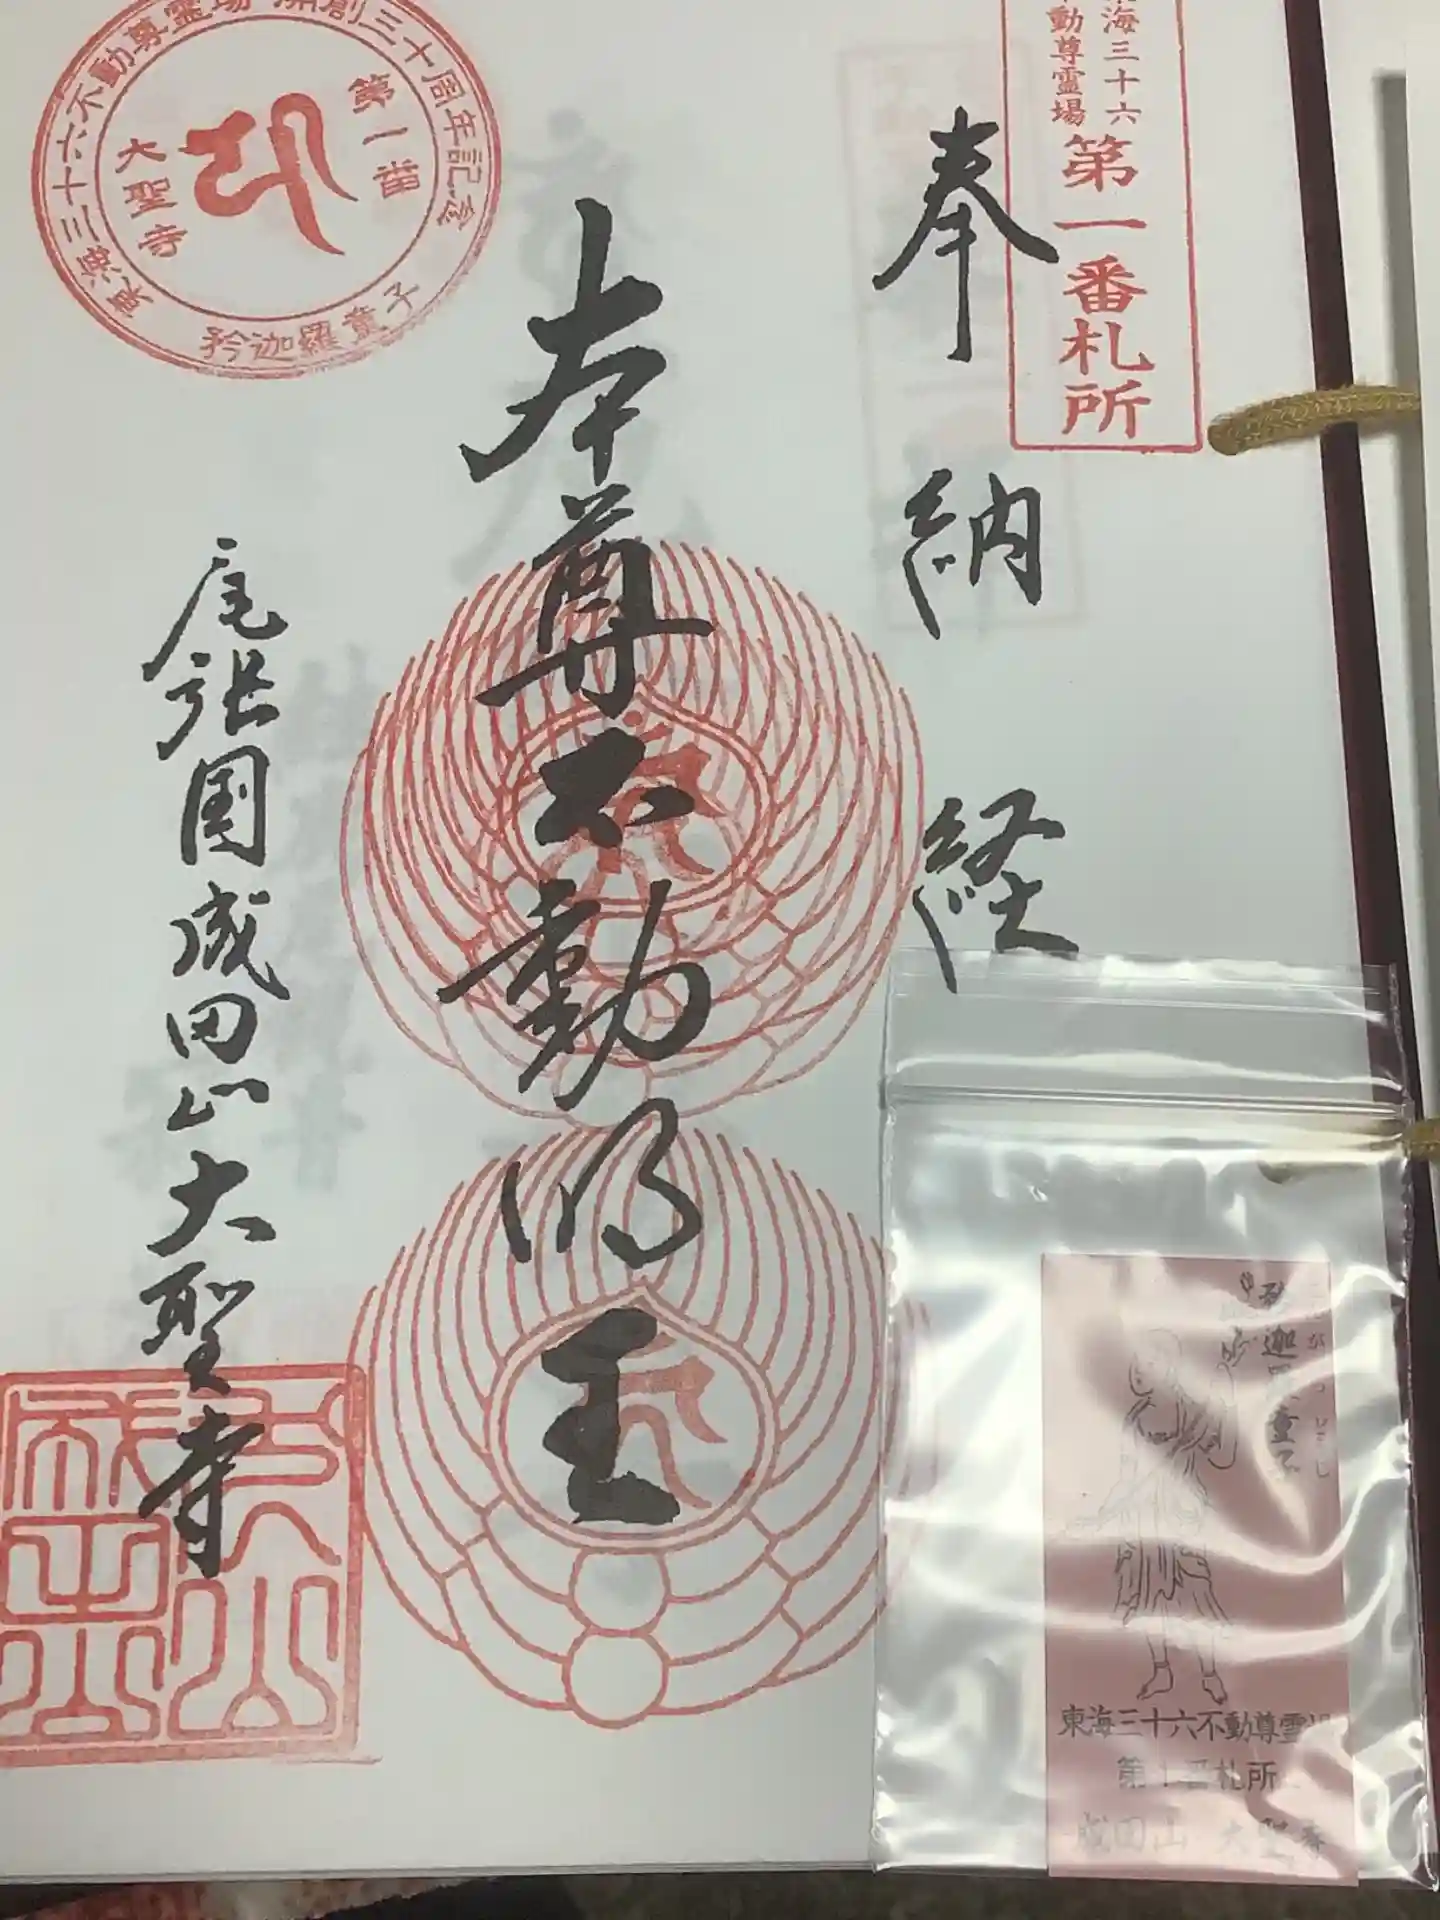 東海三十六
不動尊霊場
第一番札所
奉納経
本尊不動明王
尾張国成田山大聖寺
東海三十六不動尊霊場 開創三十周年記念
第一番
大聖寺
矜迦羅童子
東海三十六不動尊霊場
第一番札所
成田山 大聖寺